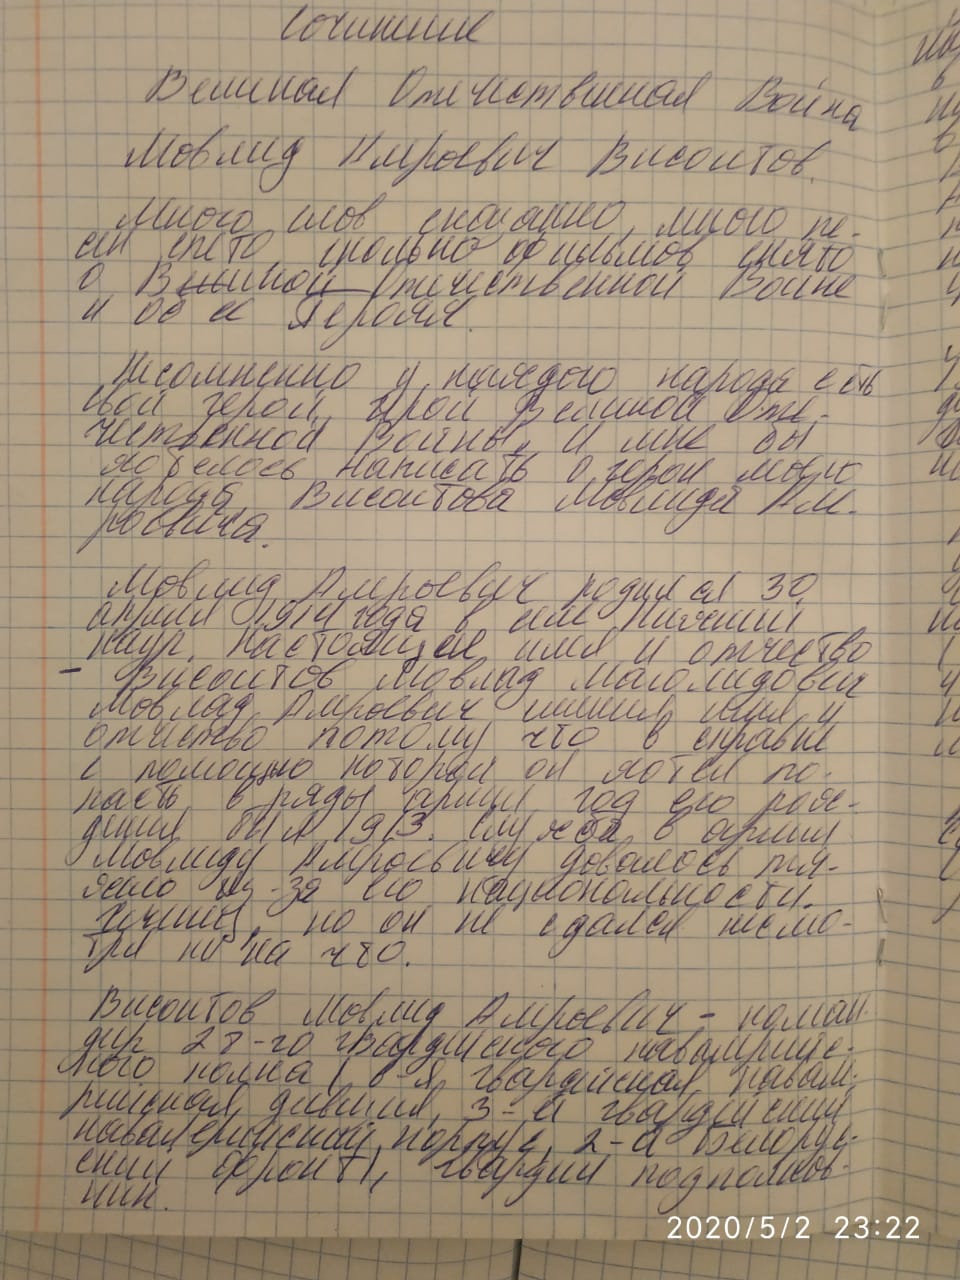 Сочинение
Великая Отечественная Война
Мовлид Амроевич Висаитов.
Много слов сказанно, много пе-
сен спето, сколько фильмов снято
о Великой Отечественной Войне
и об её Героях.
Несомненно у каждого народа есть
свой герой, герой Великой Оте-
чественной Войны. И мне бы
хотелось написать о герое моего
народа Висаитова Мовлида Ам-
роевича.
Мовлид Амроевич родился 30
апреля 1914 года в селе Нижний
Наур. Настоящее имя и отчество
- Висаитов Мовлад Магомидович
Мовлад Амроевич сменил имя и
отчество потому что в справке
с помощью которой он хотел по-
пасть в ряды армии год его рож-
дения был 1913. Служба в армии
Мовлиду Амроевичу довалось тя-
жело из-за его национальности.
но он не сдался несмо-
тря ни на что.
Висаитов Мовлид Амроевич - коман-
дир 28-го гвардейского кавалерийс-
кого полка (6-я гвардейская кавале-
рийская дивизия, 3-й гвардейский
кавалерийский корпус, 2-й Белорус-
ский фронт), гвардии подполков-
ник.
2020/5/2 23:22